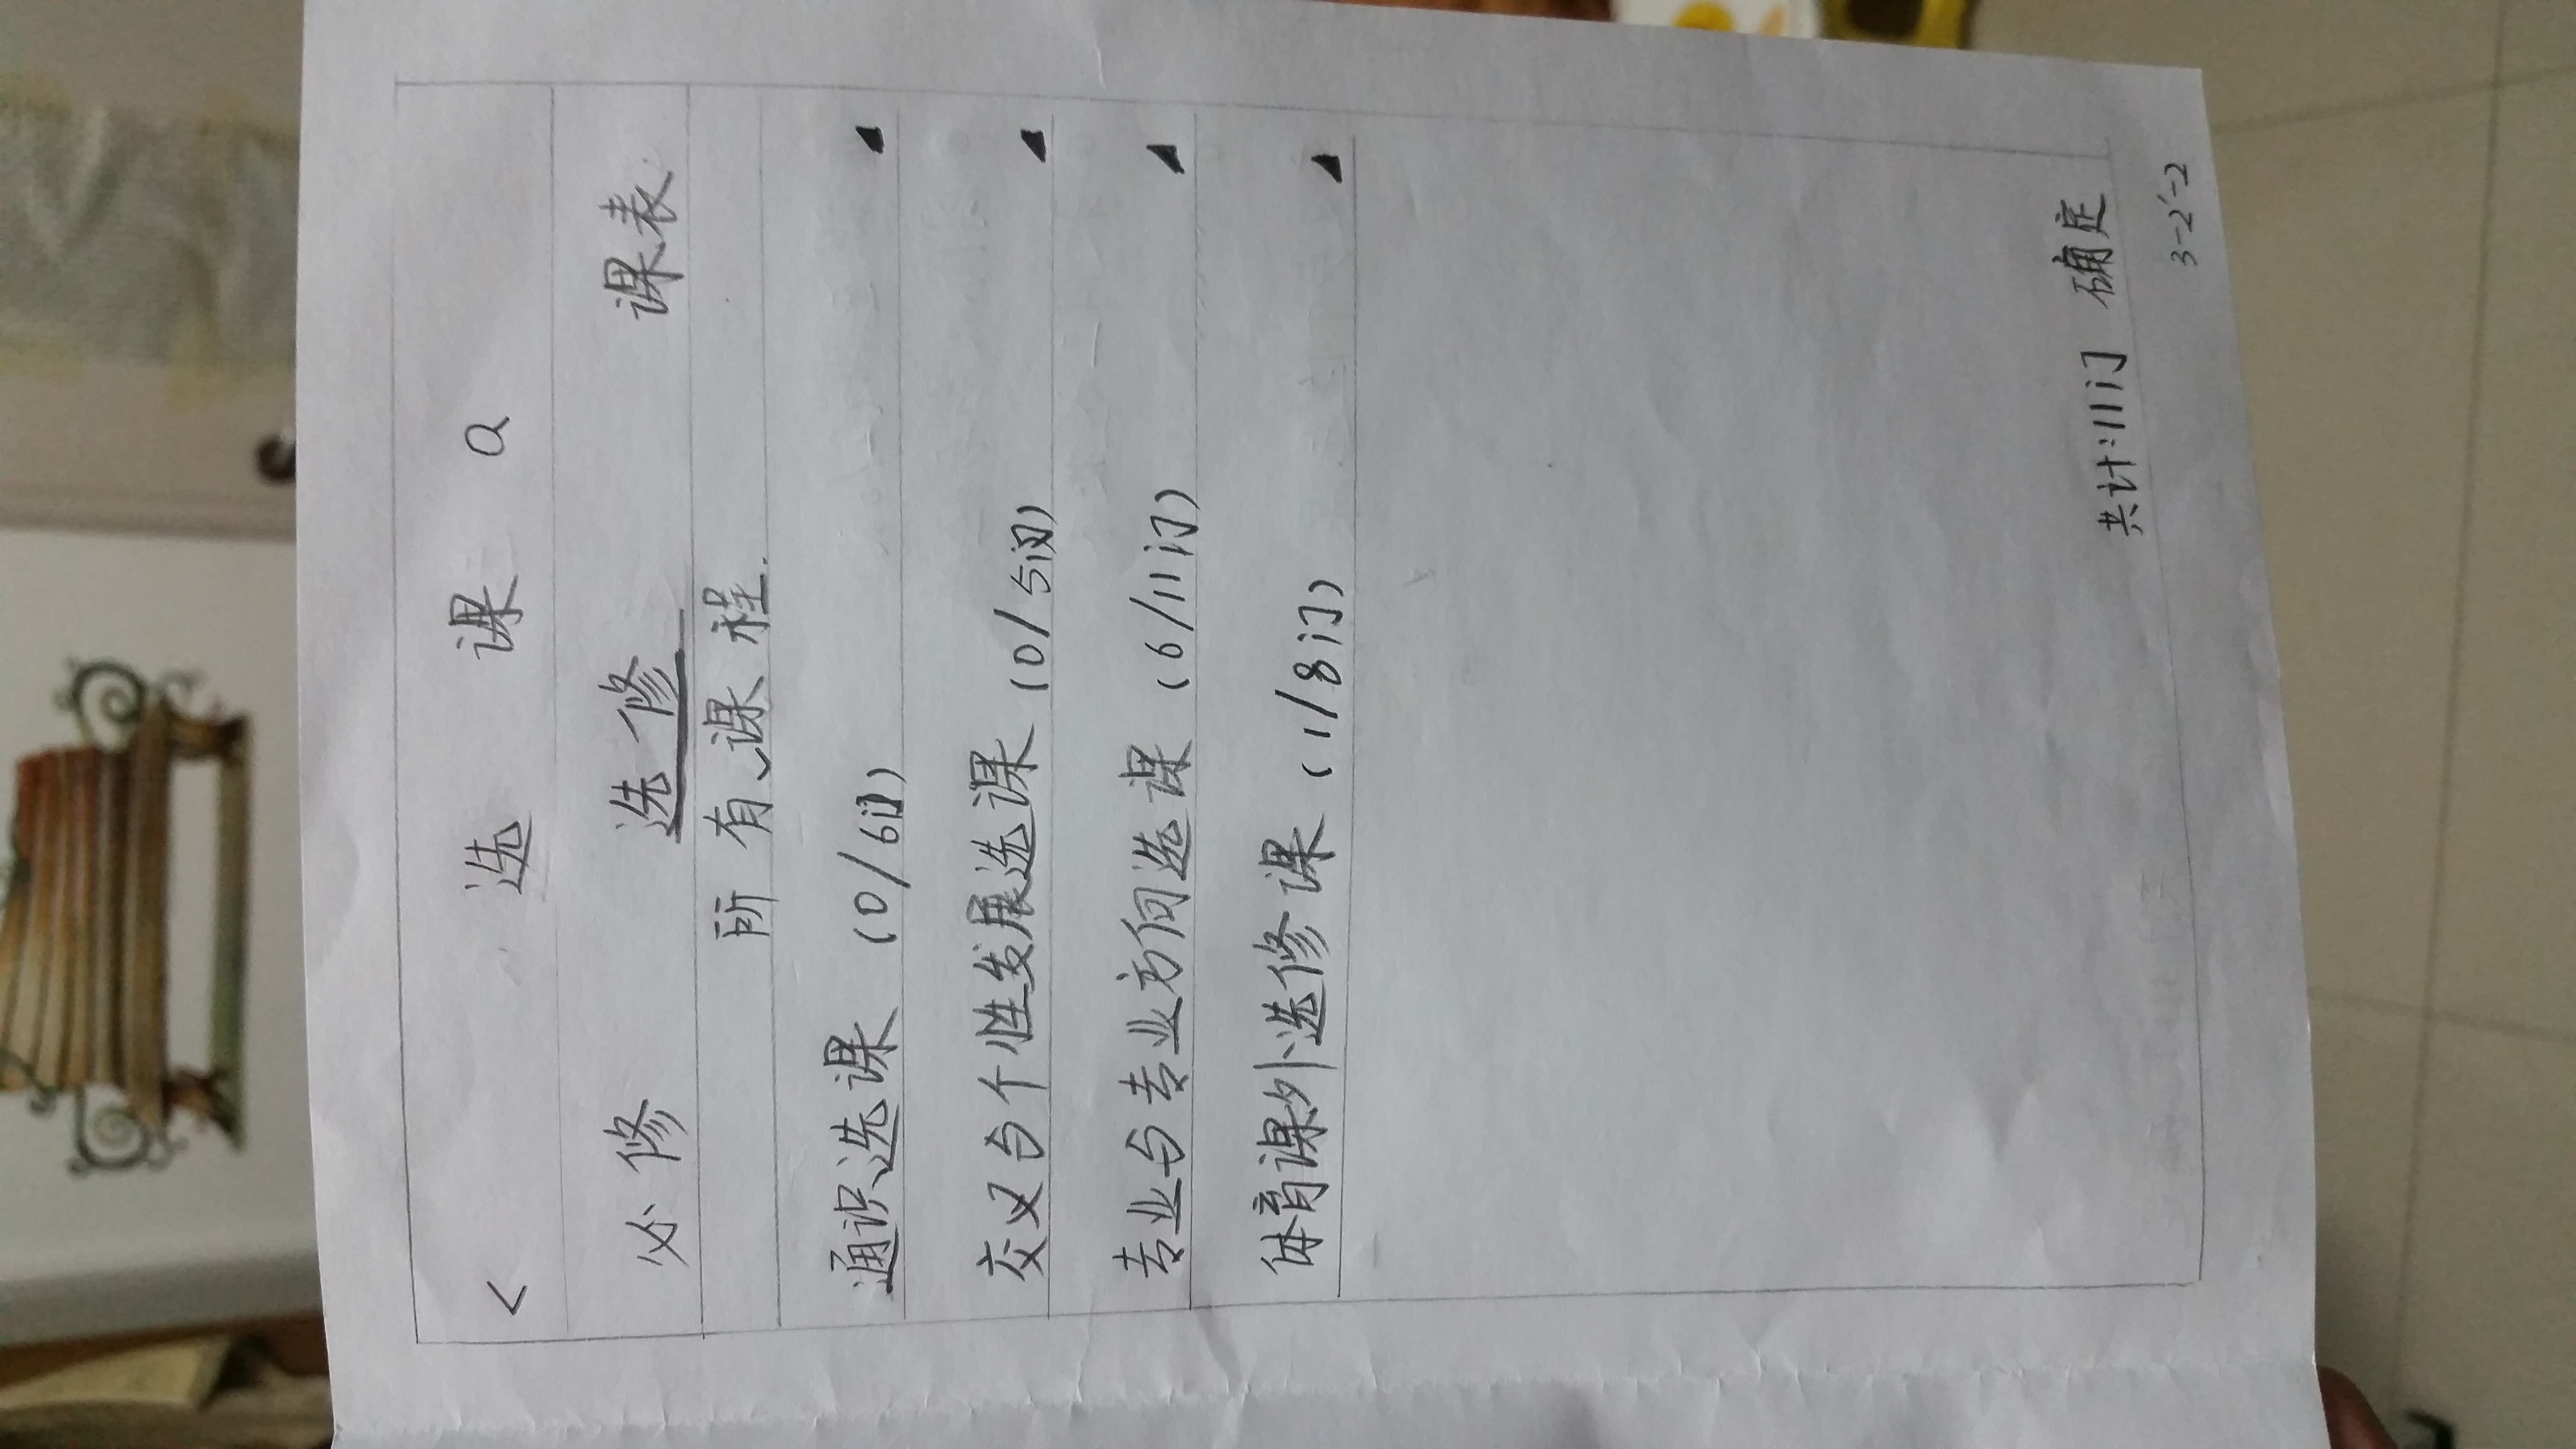 < 选 课 Q
必修 选修 课表
所有课程.
通识选课 (0/6门)
交叉与个性发展选课 (0/5门)
专业与专业方向选课 (6/11门)
体育课外选修课 (1/8门)
共计:11门 确定
3-2'-2